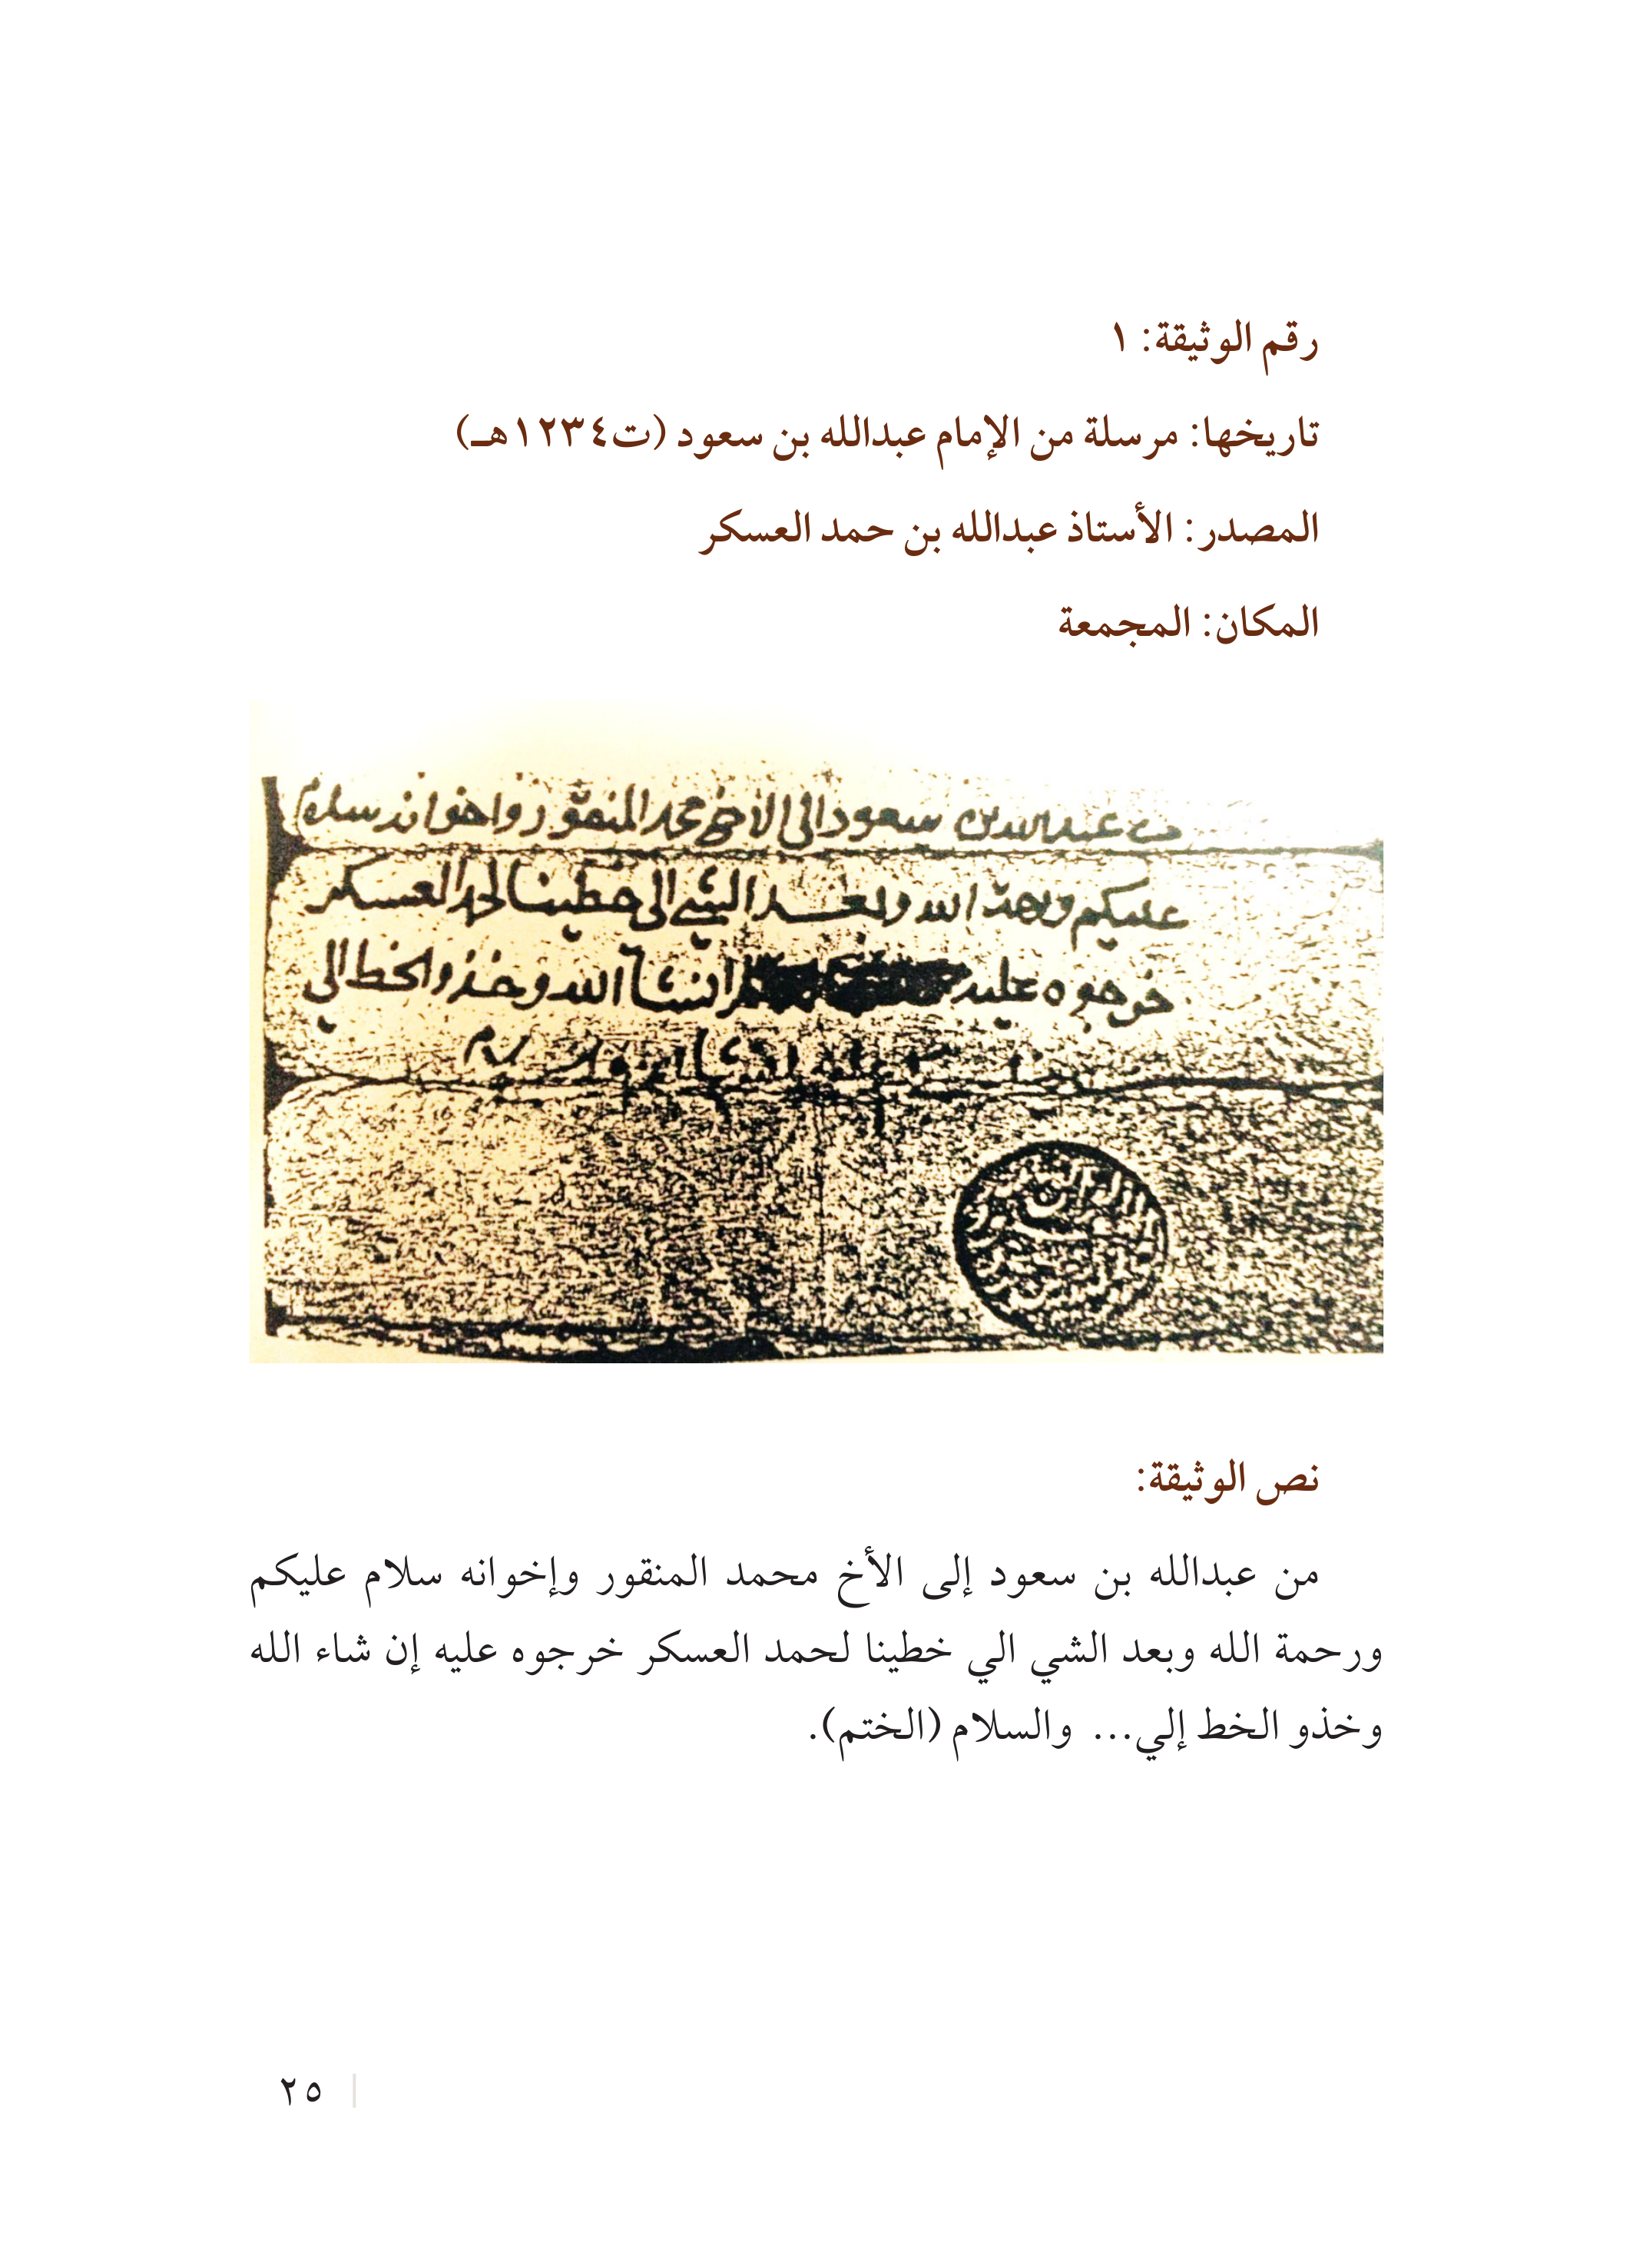 رقم الوثيقة: ١
تاريخها: مرسلة من الإمام عبدالله بن سعود (ت١٢٣٤هـ)
المصدر: الأستاذ عبدالله بن حمد العسكر
المكان: المجمعة
من عبدالله بن سعود الى الاخ محمد المنقور واخوانه سلام
عليكم ورحمة الله وبعد الشي الي خطينا لحمد العسكر
خرجوه عليه انشآ الله وخذو الخط الي
نص الوثيقة:
من عبدالله بن سعود إلى الأخ محمد المنقور وإخوانه سلام عليكم
ورحمة الله وبعد الشي الي خطينا لحمد العسكر خرجوه عليه إن شاء الله
وخذو الخط إلي... والسلام (الختم).
٢٥